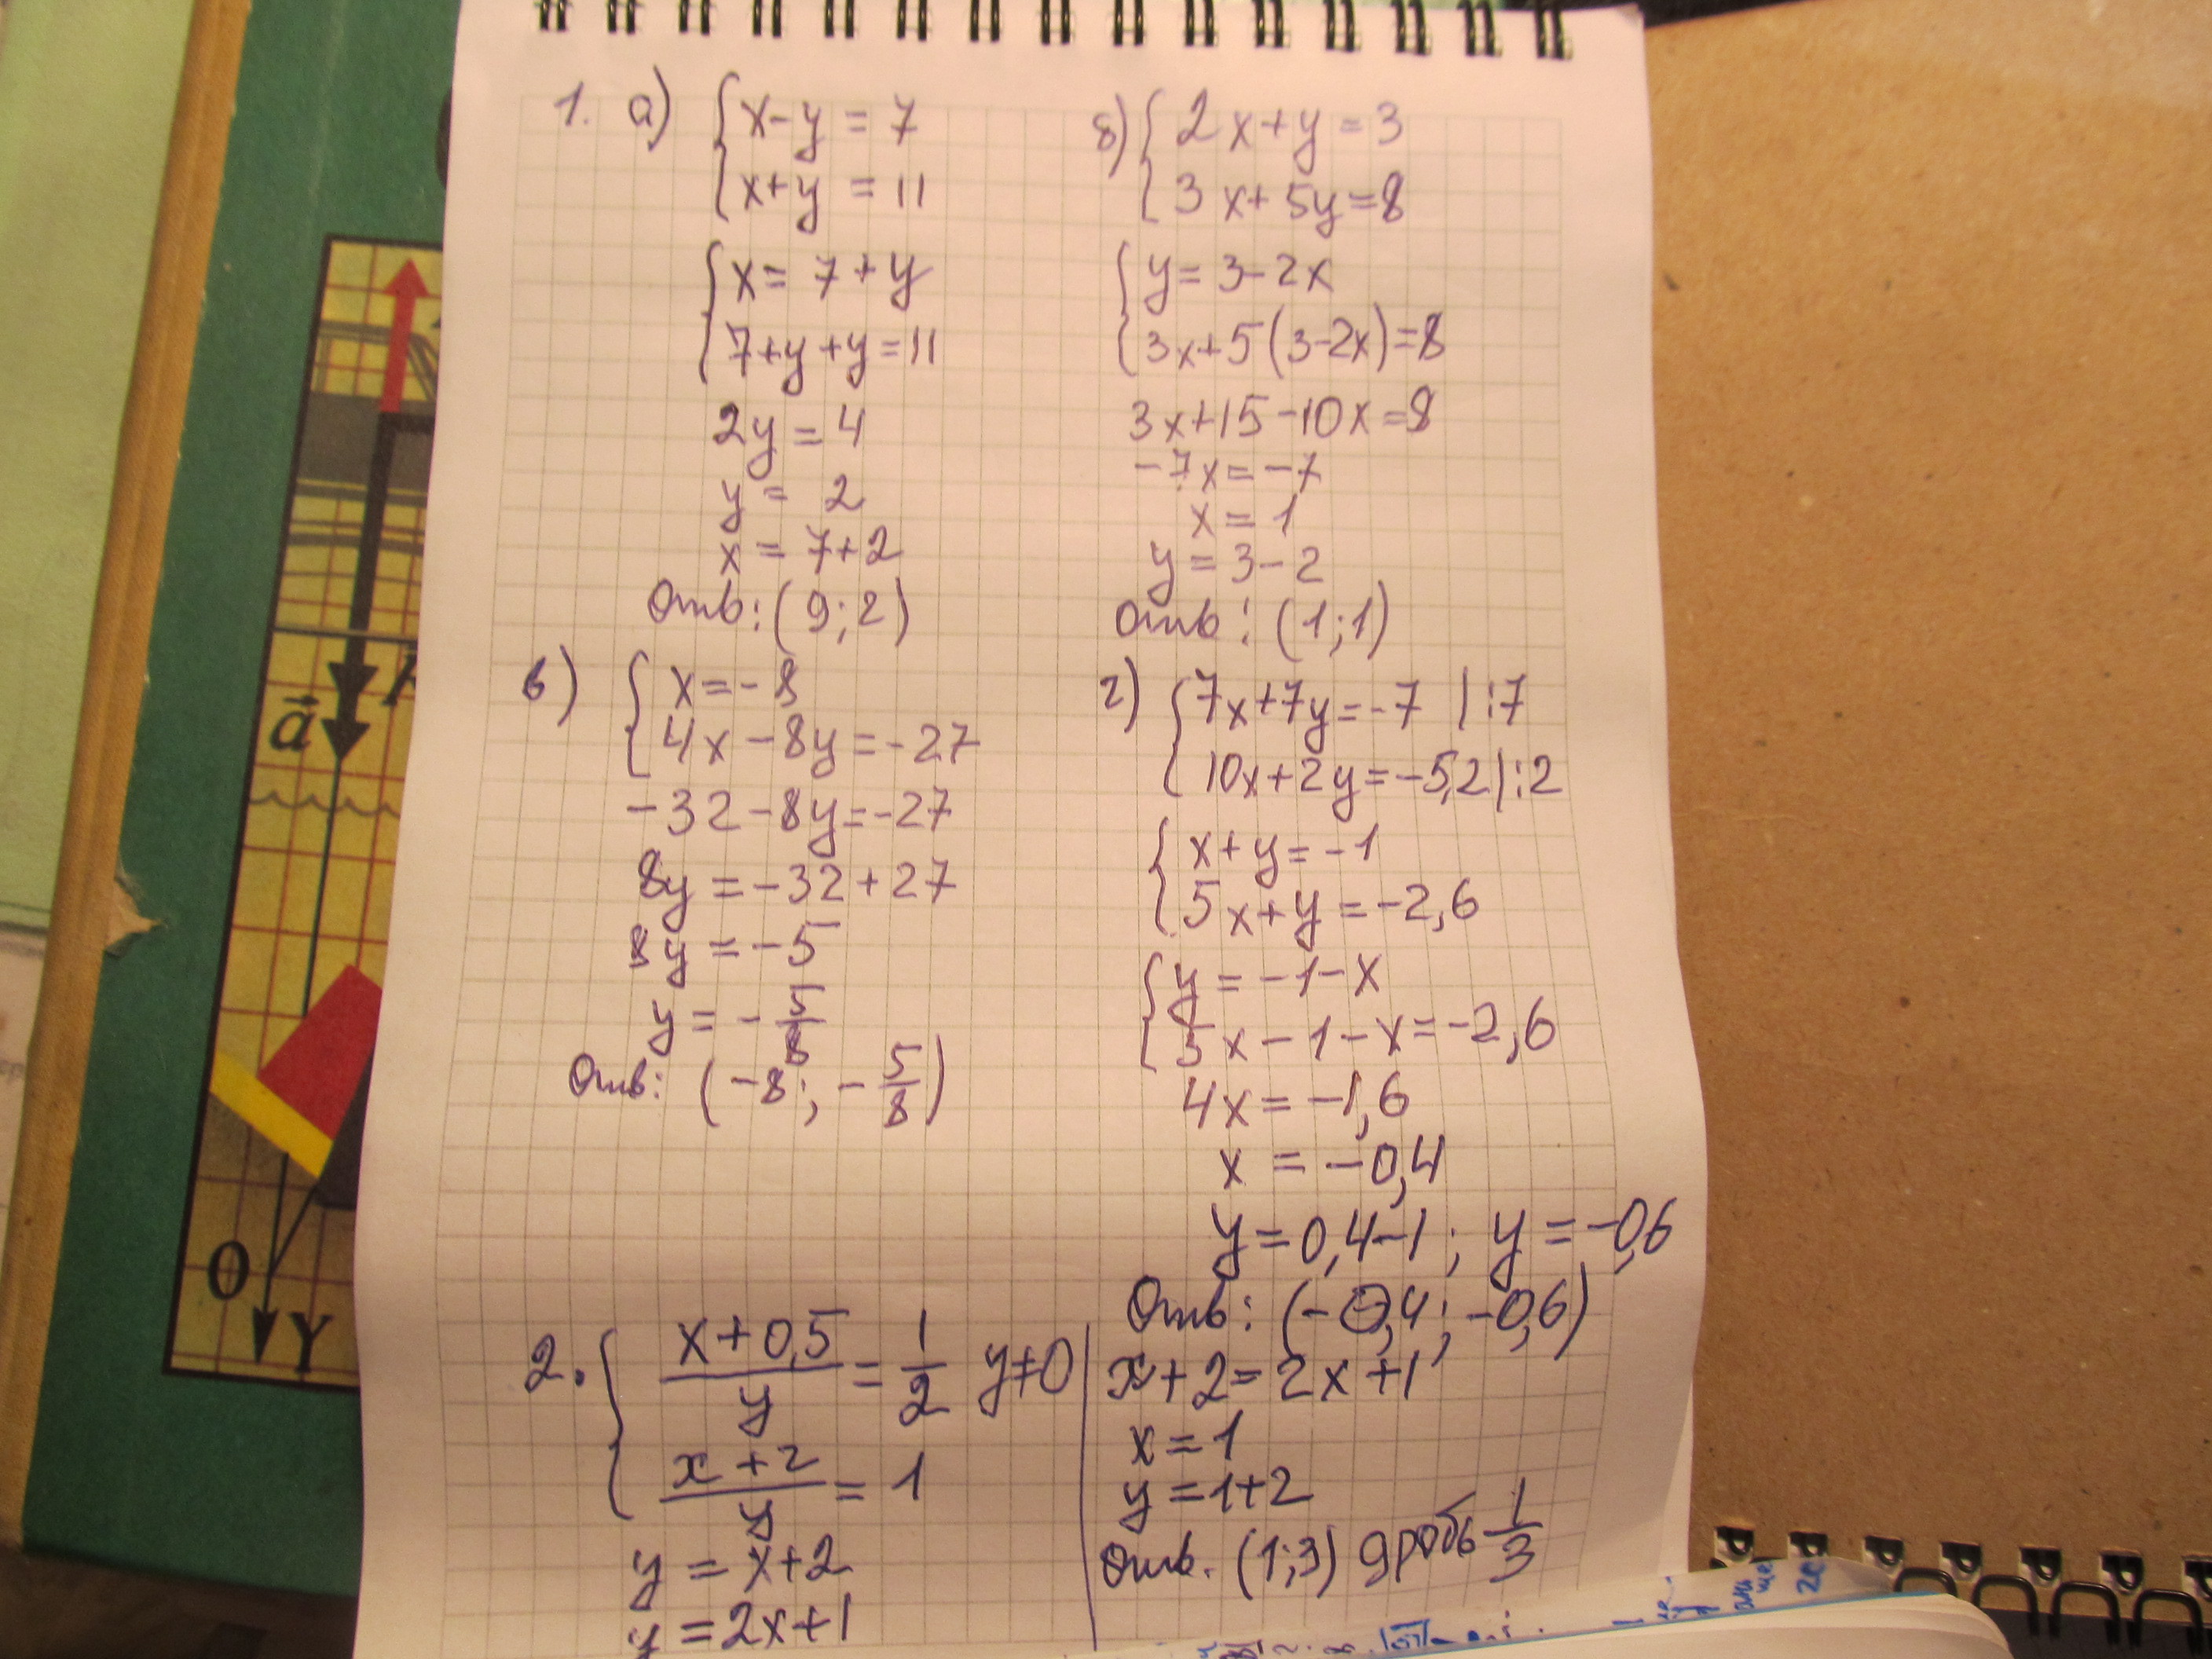 1. а) { x-y = 7
x+y = 11
{ x = 7+y
7+y+y=11
2y = 4
y = 2
x = 7+2
Отв: (9; 2)
б) { 2x+y=3
3x+5y=8
{ y = 3-2x
3x+5(3-2x)=8
3x+15-10x=8
-7x = -7
x = 1
y = 3-2
Отв: (1; 1)
в) { x = -8
4x-8y=-27
-32-8y=-27
8y = -32+27
8y = -5
y = -5/8
Отв: (-8; -5/8)
г) { 7x+7y=-7 |:7
10x+2y=-5,2 |:2
{ x+y=-1
5x+y=-2,6
{ y = -1-x
5x-1-x=-2,6
4x = -1,6
x = -0,4
y = 0,4-1; y = -0,6
Отв: (-0,4; -0,6)
2. { (x+0,5)/y = 1/2 y≠0
(x+2)/y = 1
y = x+2
y = 2x+1
x+2=2x+1
x = 1
y = 1+2
Отв. (1;3) дробь 1/3
a
O
Y